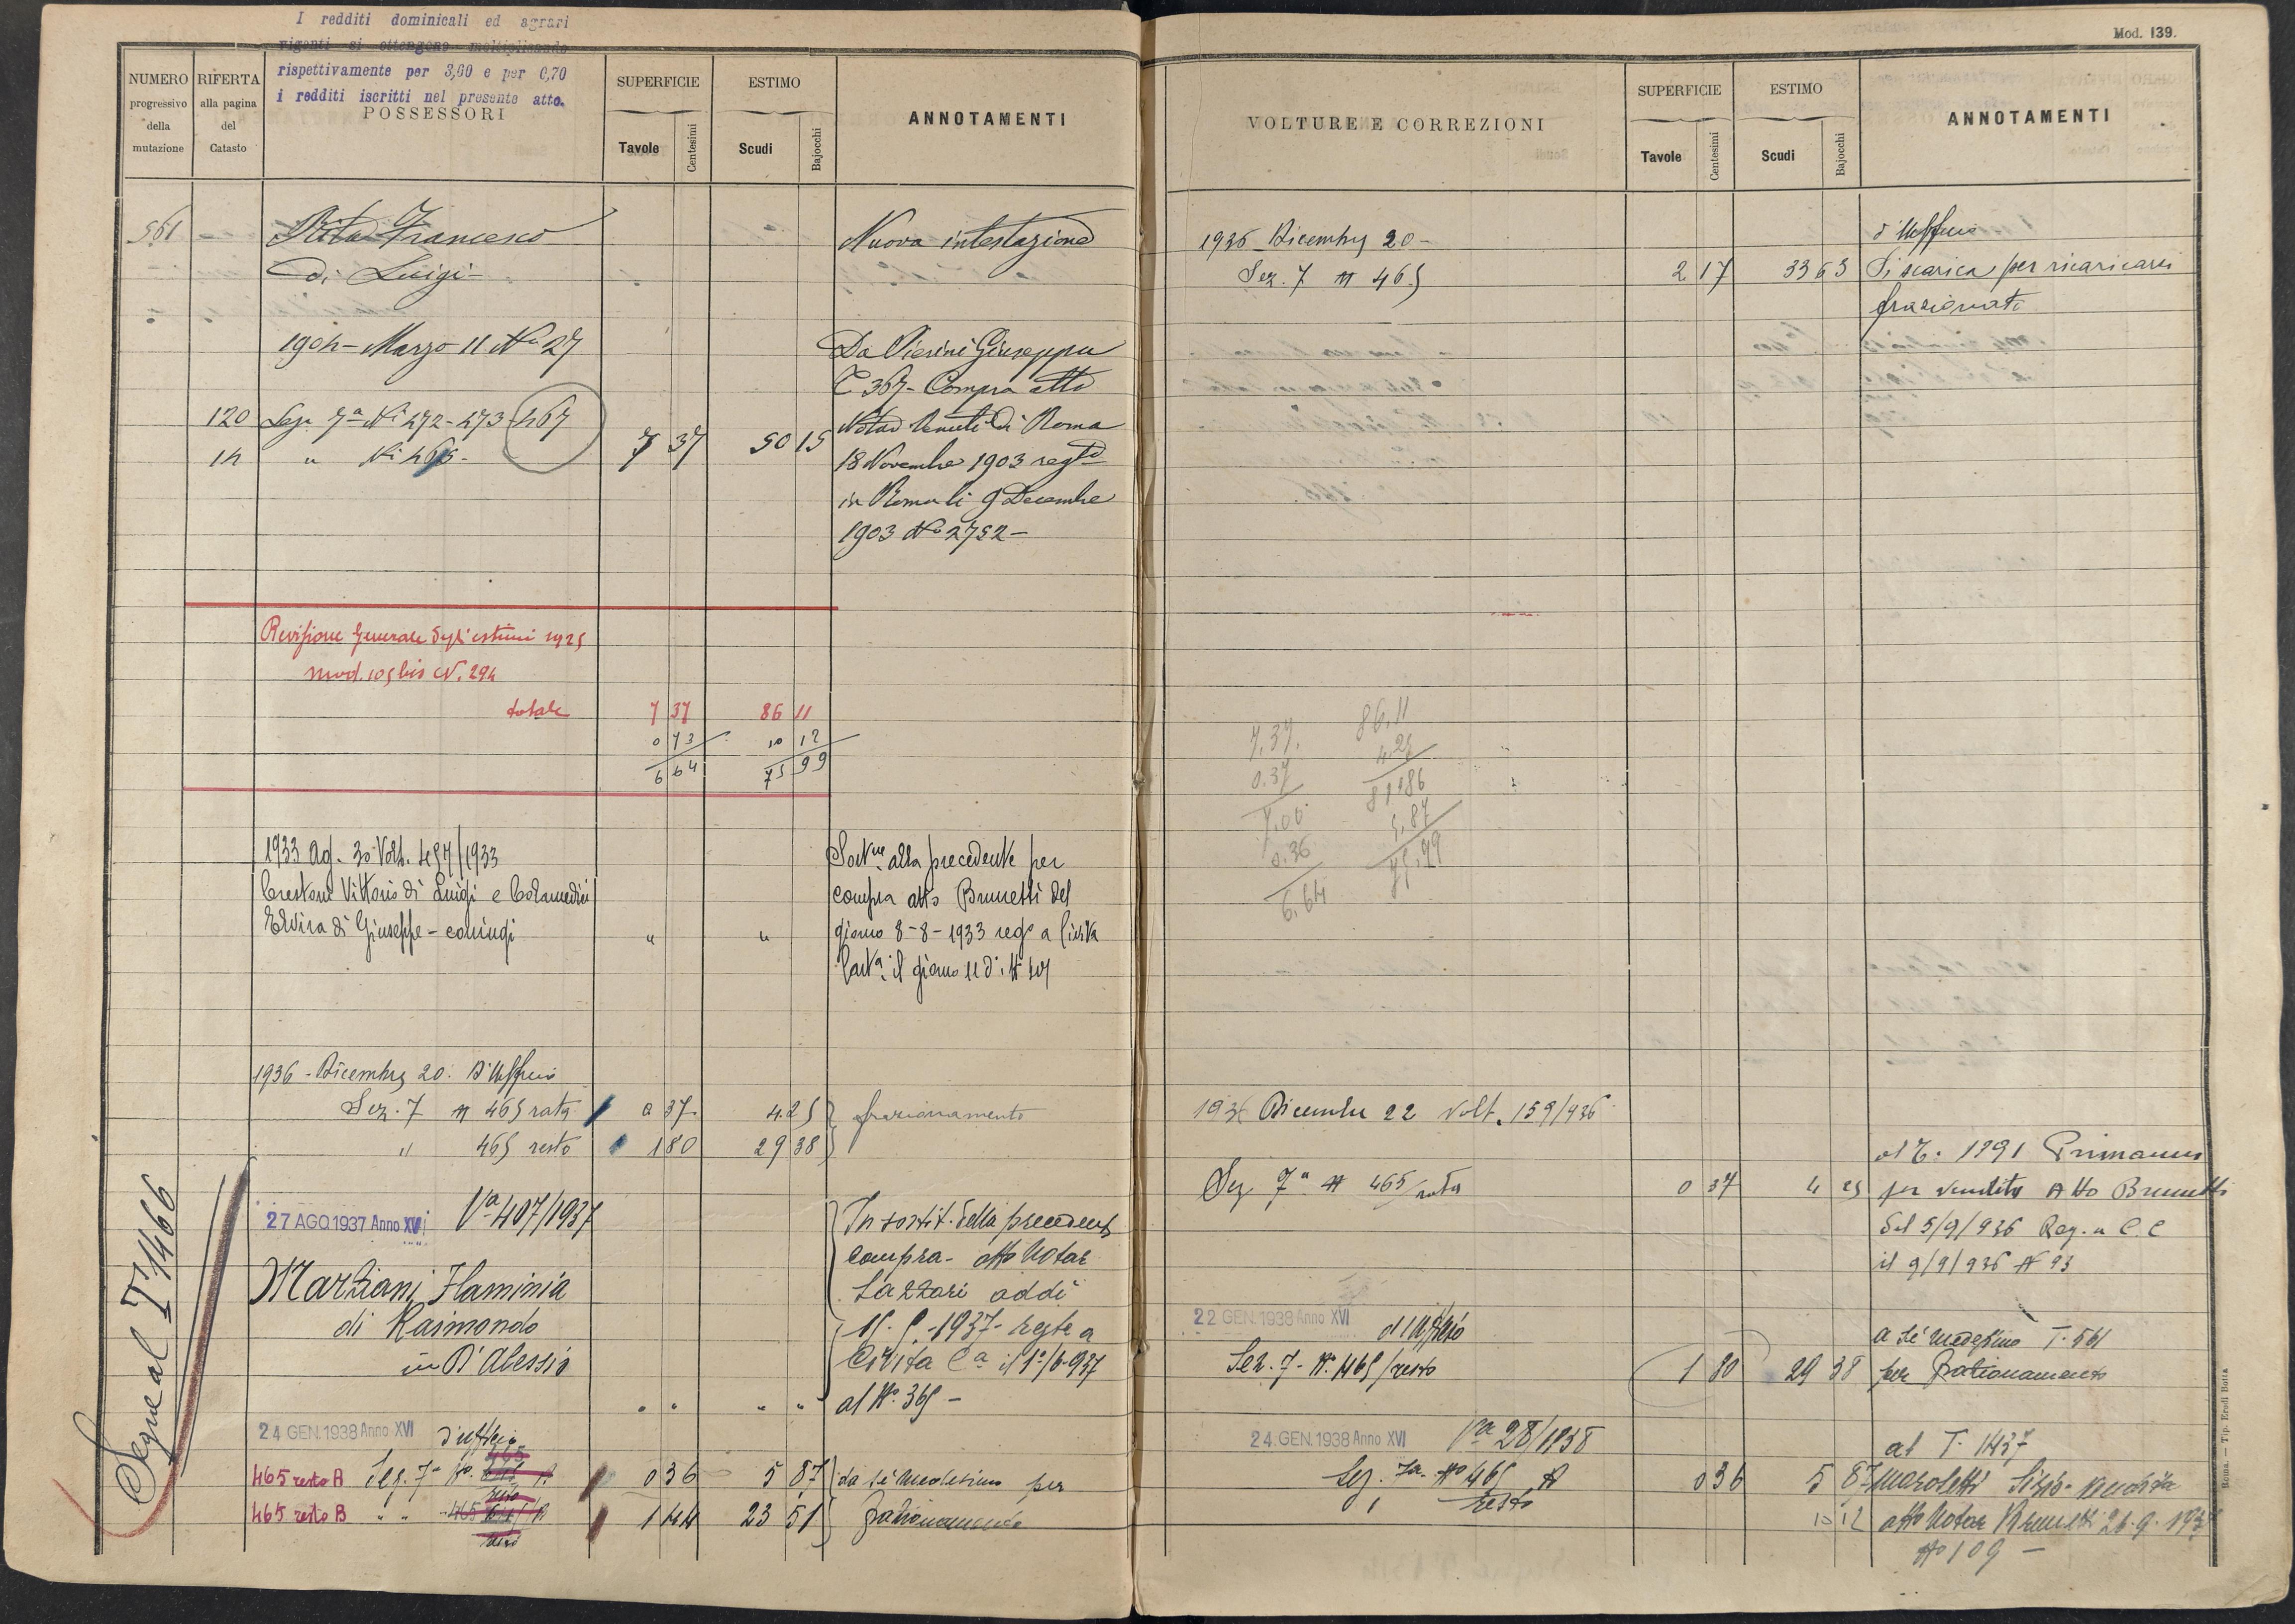 I redditi dominicali ed agrari
vigenti si ottengono moltiplicando
rispettivamente per 3,60 e per 0,70
i redditi iscritti nel presente atto.
NUMERO progressivo della mutazione
RIFERTA alla pagina del Catasto
POSSESSORI
SUPERFICIE
Tavole Centesimi
ESTIMO
Scudi Bajocchi
ANNOTAMENTI
561 Francesco
di Luigi
Nuova intestazione
1904 - Marzo 11 No 27
Da Giuseppe
T 367 - Compra atto
120 Sez. 7a Ni 272 - 273 - 467
14 " Ni 465 -
7 37 50 15
Notar Venuti di Roma
18 Novembre 1903 regto
in Roma li 9 Decembre
1903 No 2752 -
Revisione Generale degli estimi 1925
mod. 105 bis N. 294
totale 7 37 86 11
0 73 10 12
6 64 75 99
1933 Ag. 30 Volt. 457/1933
Vittorio di Luigi e Colamedici
Elvira di Giuseppe - coniugi
" "
alla precedente per
compra atto Brunetti del
giorno 8-8-1933 rego a Civita
il giorno 11 do N
1936 - Dicembre 20. D'Ufficio
Sez. 7 N 465 rata 0 37 4 25
" 465 resto 1 80 29 38
frazionamento
27 AGO 1937 Anno XVi Va 407/1937
Marziani Flaminia
di Raimondo
in D'Alessio
In sostit. della precedente
compra - atto Notar
Lazzari addì
1937 - regto a
Civita Ca il 1°/6-937
al No. 365 -
24 GEN. 1938 Anno XVI d'ufficio
465 resto A Sez. 7a No. 0 36 5 87
465 resto B " " 1 44 23 51
da sè medesimo per
frazionamento
Segue al T 1466
Mod. 139.
VOLTURE E CORREZIONI
SUPERFICIE
Tavole Centesimi
ESTIMO
Scudi Bajocchi
ANNOTAMENTI
1936 - Dicembre 20 -
Sez. 7 N 465 2 17 33 63
d'Ufficio
Si scarica per ricaricarsi
frazionato
7.37. 86.11
0.37 4.25
7.00 81.86
0.36 5.87
6.64 75.99
1936 Dicembre 22 Volt. 159/936
Sez 7a N 465/rata 0 37 4 25
al T. 1291
per vendita Atto Brunetti
del 5/9/936 Reg. a C. C
il 9/9/936 N 93
22 GEN. 1938 Anno XVI d'ufficio
Sez. 7 - N. 465/resto 1 80 29 38
a sè medesimo T. 561
per frazionamento
24. GEN. 1938 Anno XVI Va 28/1938
Sez. 7a No 465 A
resto
0 36 5 87
10 12
al T. 1437
vendita
atto Notar Brunetti
No 109 -
Roma. - Tip. Eredi Botta